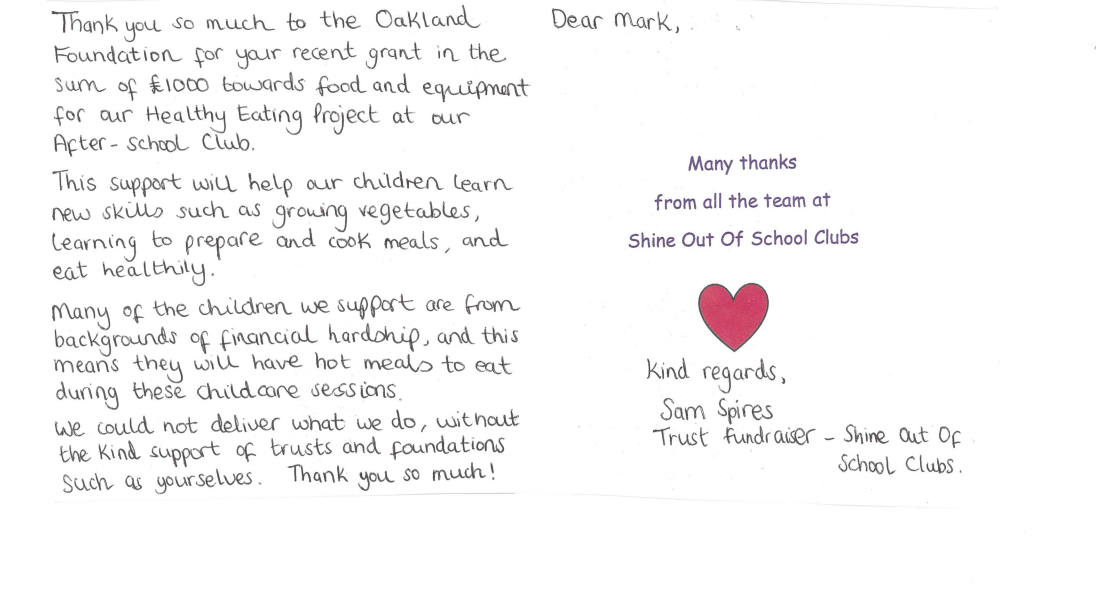 Thank you so much to the Oakland
Foundation for your recent grant in the
sum of £1000 towards food and equipment
for our Healthy Eating Project at our
After-School Club.
This support will help our children learn
new skills such as growing vegetables,
learning to prepare and cook meals, and
eat healthily.
Many of the children we support are from
backgrounds of financial hardship, and this
means they will have hot meals to eat
during these childcare sessions.
We could not deliver what we do, without
the kind support of trusts and foundations
such as yourselves. Thank you so much!
Dear Mark,
Many thanks
from all the team at
Shine Out Of School Clubs
Kind regards,
Sam Spires
Trust fundraiser - Shine Out Of
School Clubs.